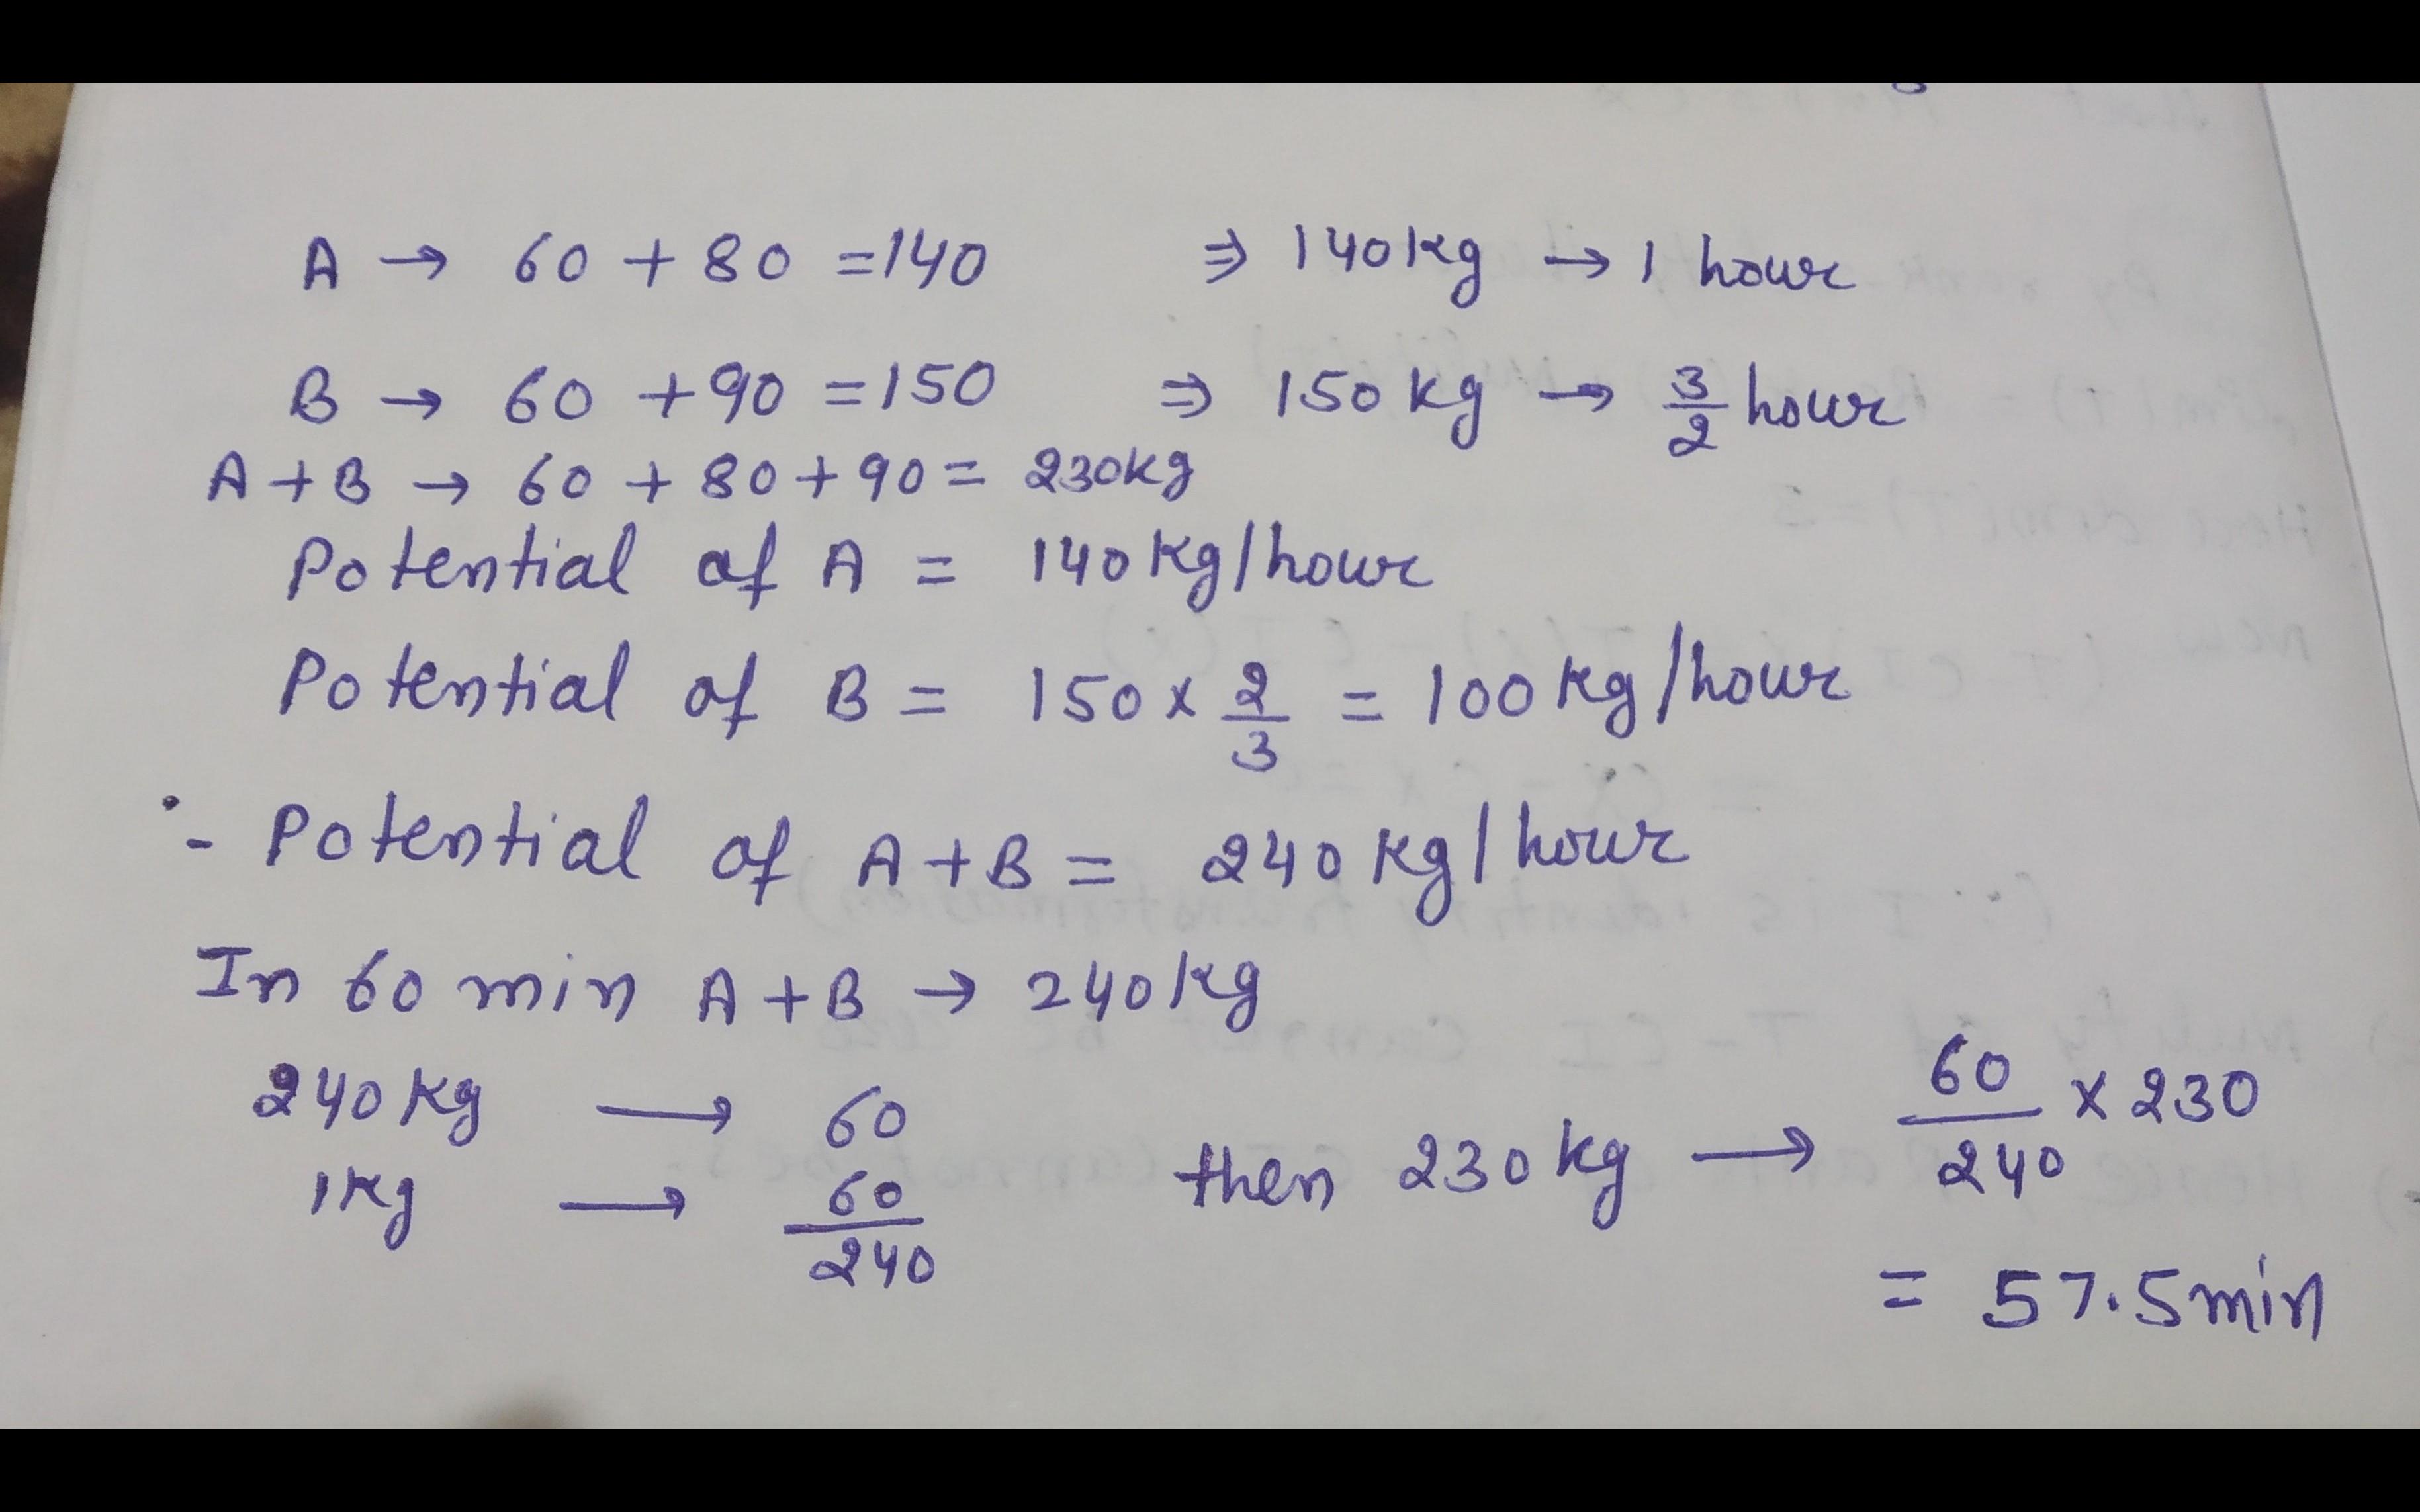 A → 60 + 80 = 140 ⇒ 140 kg → 1 hour
B → 60 + 90 = 150 ⇒ 150 kg → 3/2 hour
A + B → 60 + 80 + 90 = 230 kg
Potential of A = 140 kg/hour
Potential of B = 150 x 2/3 = 100 kg/hour
:- Potential of A + B = 240 kg/hour
In 60 min A + B → 240 kg
240 kg → 60
1 kg → 60/240 then 230 kg → 60/240 x 230
= 57.5 min